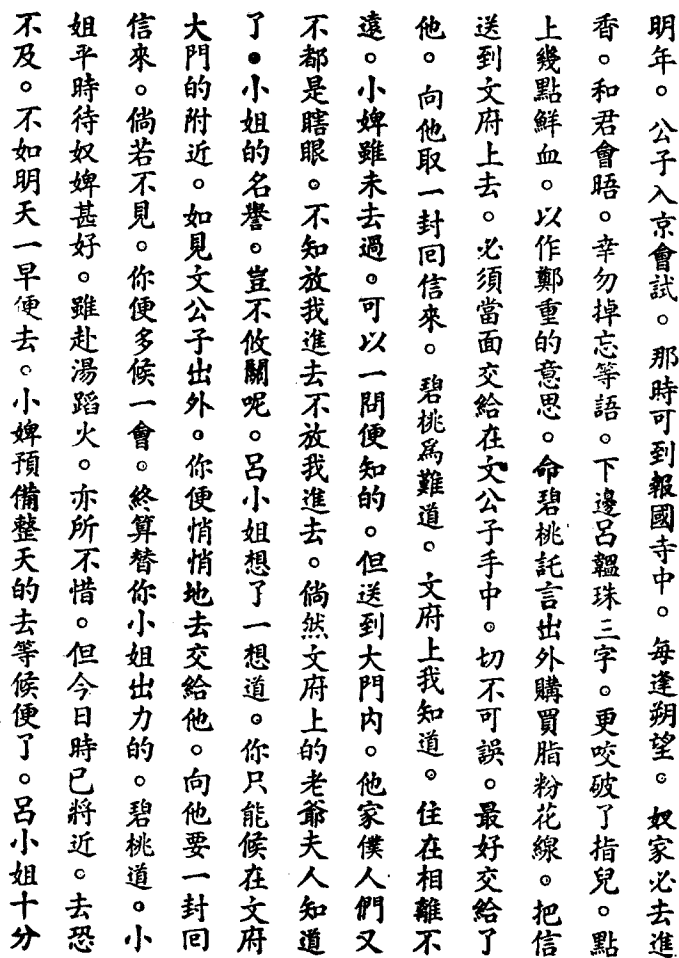 明年。公子入京會試。那時可到報國寺中。每逢朔望。奴家必去進
香。和君會晤。幸勿掉忘等語。下邊呂韞珠三字。更咬破了指兒。點
上幾點鮮血。以作鄭重的意思。命碧桃託言出外購買脂粉花線。把信
送到文府上去。必須當面交給在文公子手中。切不可誤。最好交給了
他。向他取一封回信來。碧桃爲難道。文府上我知道。住在相離不
遠。小婢雖未去過。可以一問便知的。但送到大門内。他家僕人們又
不都是瞎眼。不知放我進去不放我進去。倘然文府上的老爺夫人知道
了。小姐的名譽。豈不攸關呢。呂小姐想了一想道。你只能候在文府
大門的附近。如見文公子出外。你便悄悄地去交給他。向他要一封回
信來。倘若不見。你便多候一會。終算替你小姐出力的。碧桃道。小
姐平時待奴婢甚好。雖赴湯蹈火。亦所不惜。但今日時已將近。去恐
不及。不如明天一早便去。小婢預備整天的去等候便了。呂小姐十分